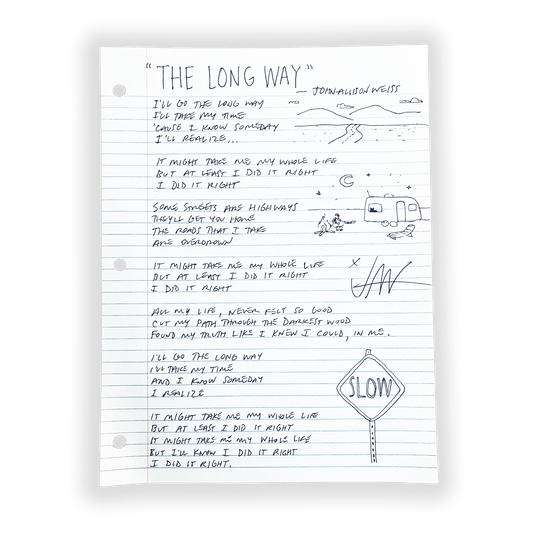 "THE LONG WAY"
— JOHN-ALLISON WEISS
I'LL GO THE LONG WAY
I'LL TAKE MY TIME
'CAUSE I KNOW SOMEDAY
I'LL REALIZE...
IT MIGHT TAKE ME MY WHOLE LIFE
BUT AT LEAST I DID IT RIGHT
I DID IT RIGHT
SOME STREETS ARE HIGHWAYS
THEY'LL GET YOU HOME
THE ROADS THAT I TAKE
ARE OVERGROWN
IT MIGHT TAKE ME MY WHOLE LIFE
BUT AT LEAST I DID IT RIGHT
I DID IT RIGHT
X JAW
ALL MY LIFE, NEVER FELT SO GOOD
CUT MY PATH THROUGH THE DARKEST WOOD
FOUND MY TRUTH LIKE I KNEW I COULD, IN ME.
I'LL GO THE LONG WAY
I'LL TAKE MY TIME
AND I KNOW SOMEDAY
I REALIZE
SLOW
IT MIGHT TAKE ME MY WHOLE LIFE
BUT AT LEAST I DID IT RIGHT
IT MIGHT TAKE ME MY WHOLE LIFE
BUT I'LL KNOW I DID IT RIGHT
I DID IT RIGHT.